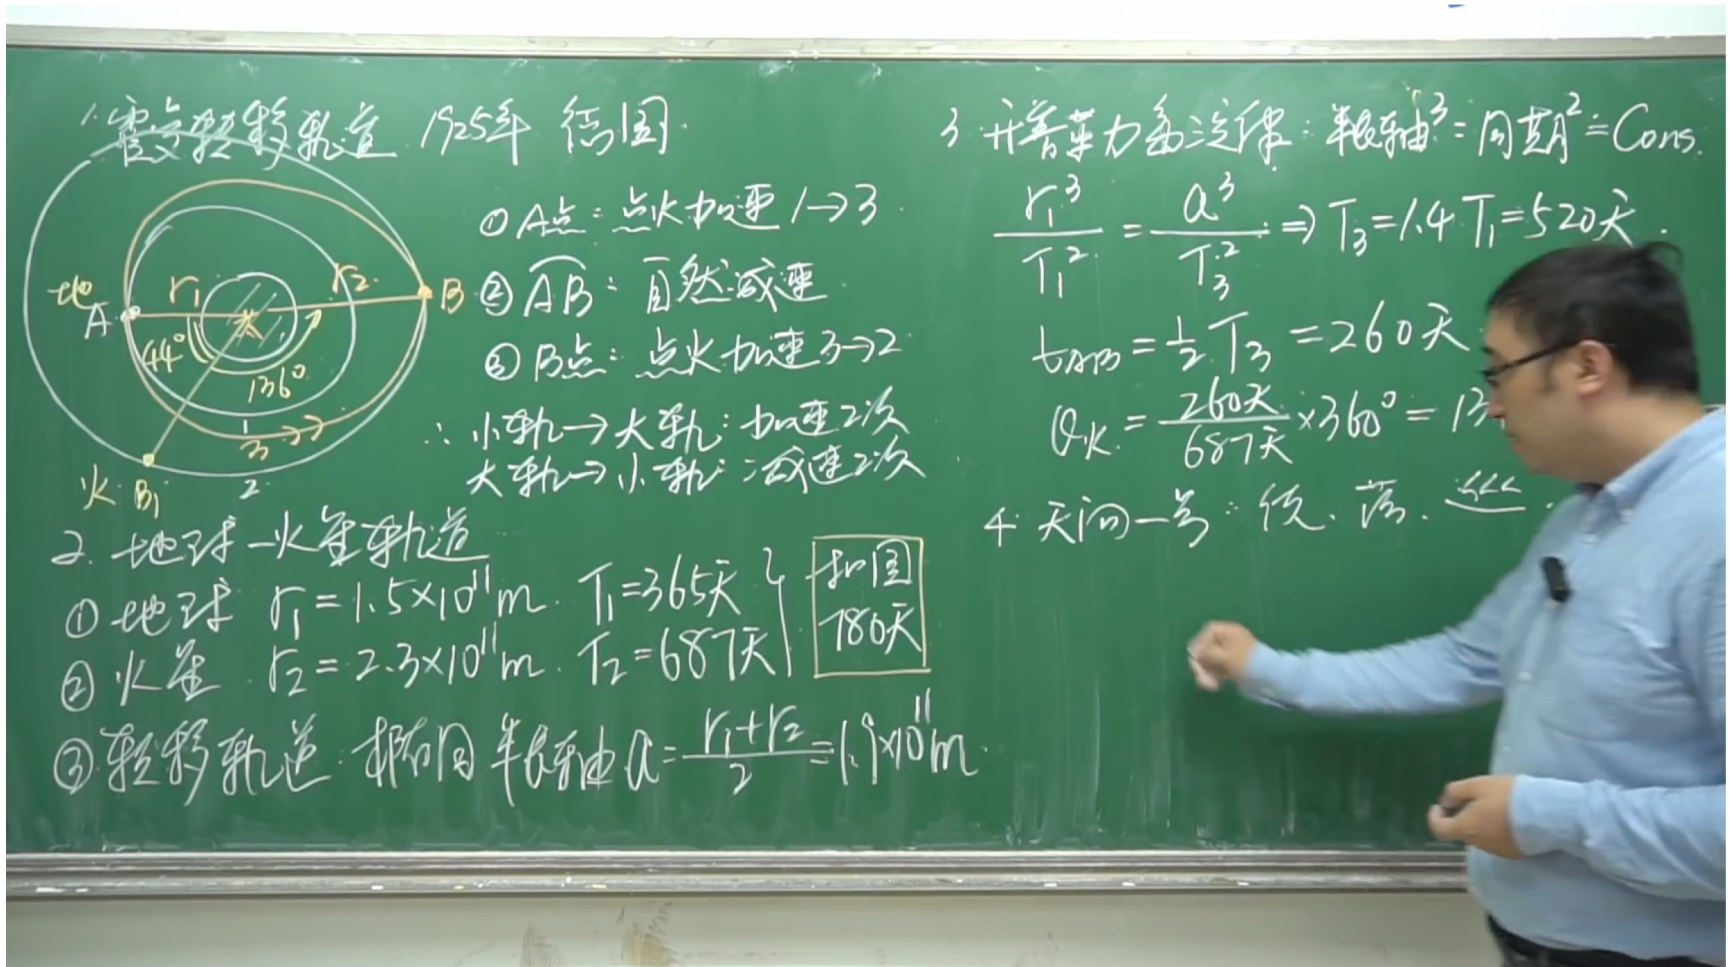 1. 霍曼转移轨道 1925年 德国
地
A
r₁
r₂
B
44°
136°
1
3
2
火 B₁
①A点: 点火加速 1→3
②AB: 自然减速
③B点: 点火加速3→2
∴ 小轨→大轨: 加速2次
大轨→小轨: 减速2次
2. 地球-火星轨道
① 地球 r₁=1.5×10¹¹m. T₁=365天
② 火星 r₂=2.3×10¹¹m. T₂=687天
相图
780天
③ 转移轨道: 椭圆 半长轴 a=(r₁+r₂)/2=1.9×10¹¹m
3 开普勒力第三定律: 半长轴³=周期²=Cons.
r₁³/T₁²=a³/T₃² ⇒ T₃=1.4T₁=520天.
t_AB=1/2 T₃=260天
θ火=260天/687天×360°=13
4. 天问一号: 绕. 落. 巡.